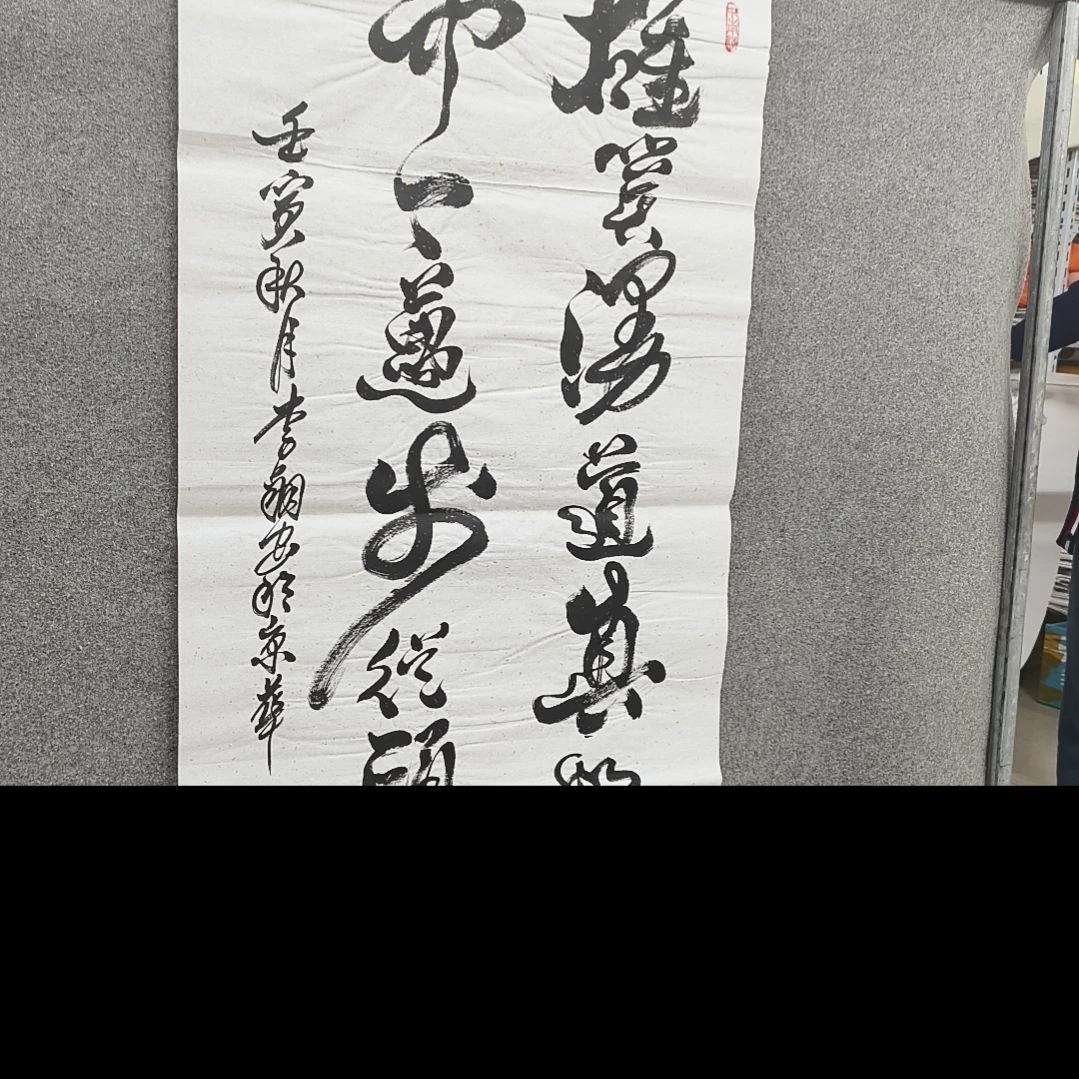 雄关漫道真如
而今迈步从头
壬寅秋月李翔安于京华